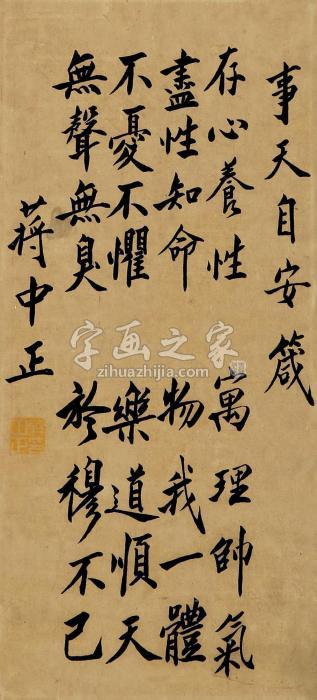 事天自安箴
存心養性 寓理帥氣
盡性知命 物我一體
不憂不懼 樂道順天
無聲無臭 於穆不已
蔣中正
字画之家
zihuazhijia.com